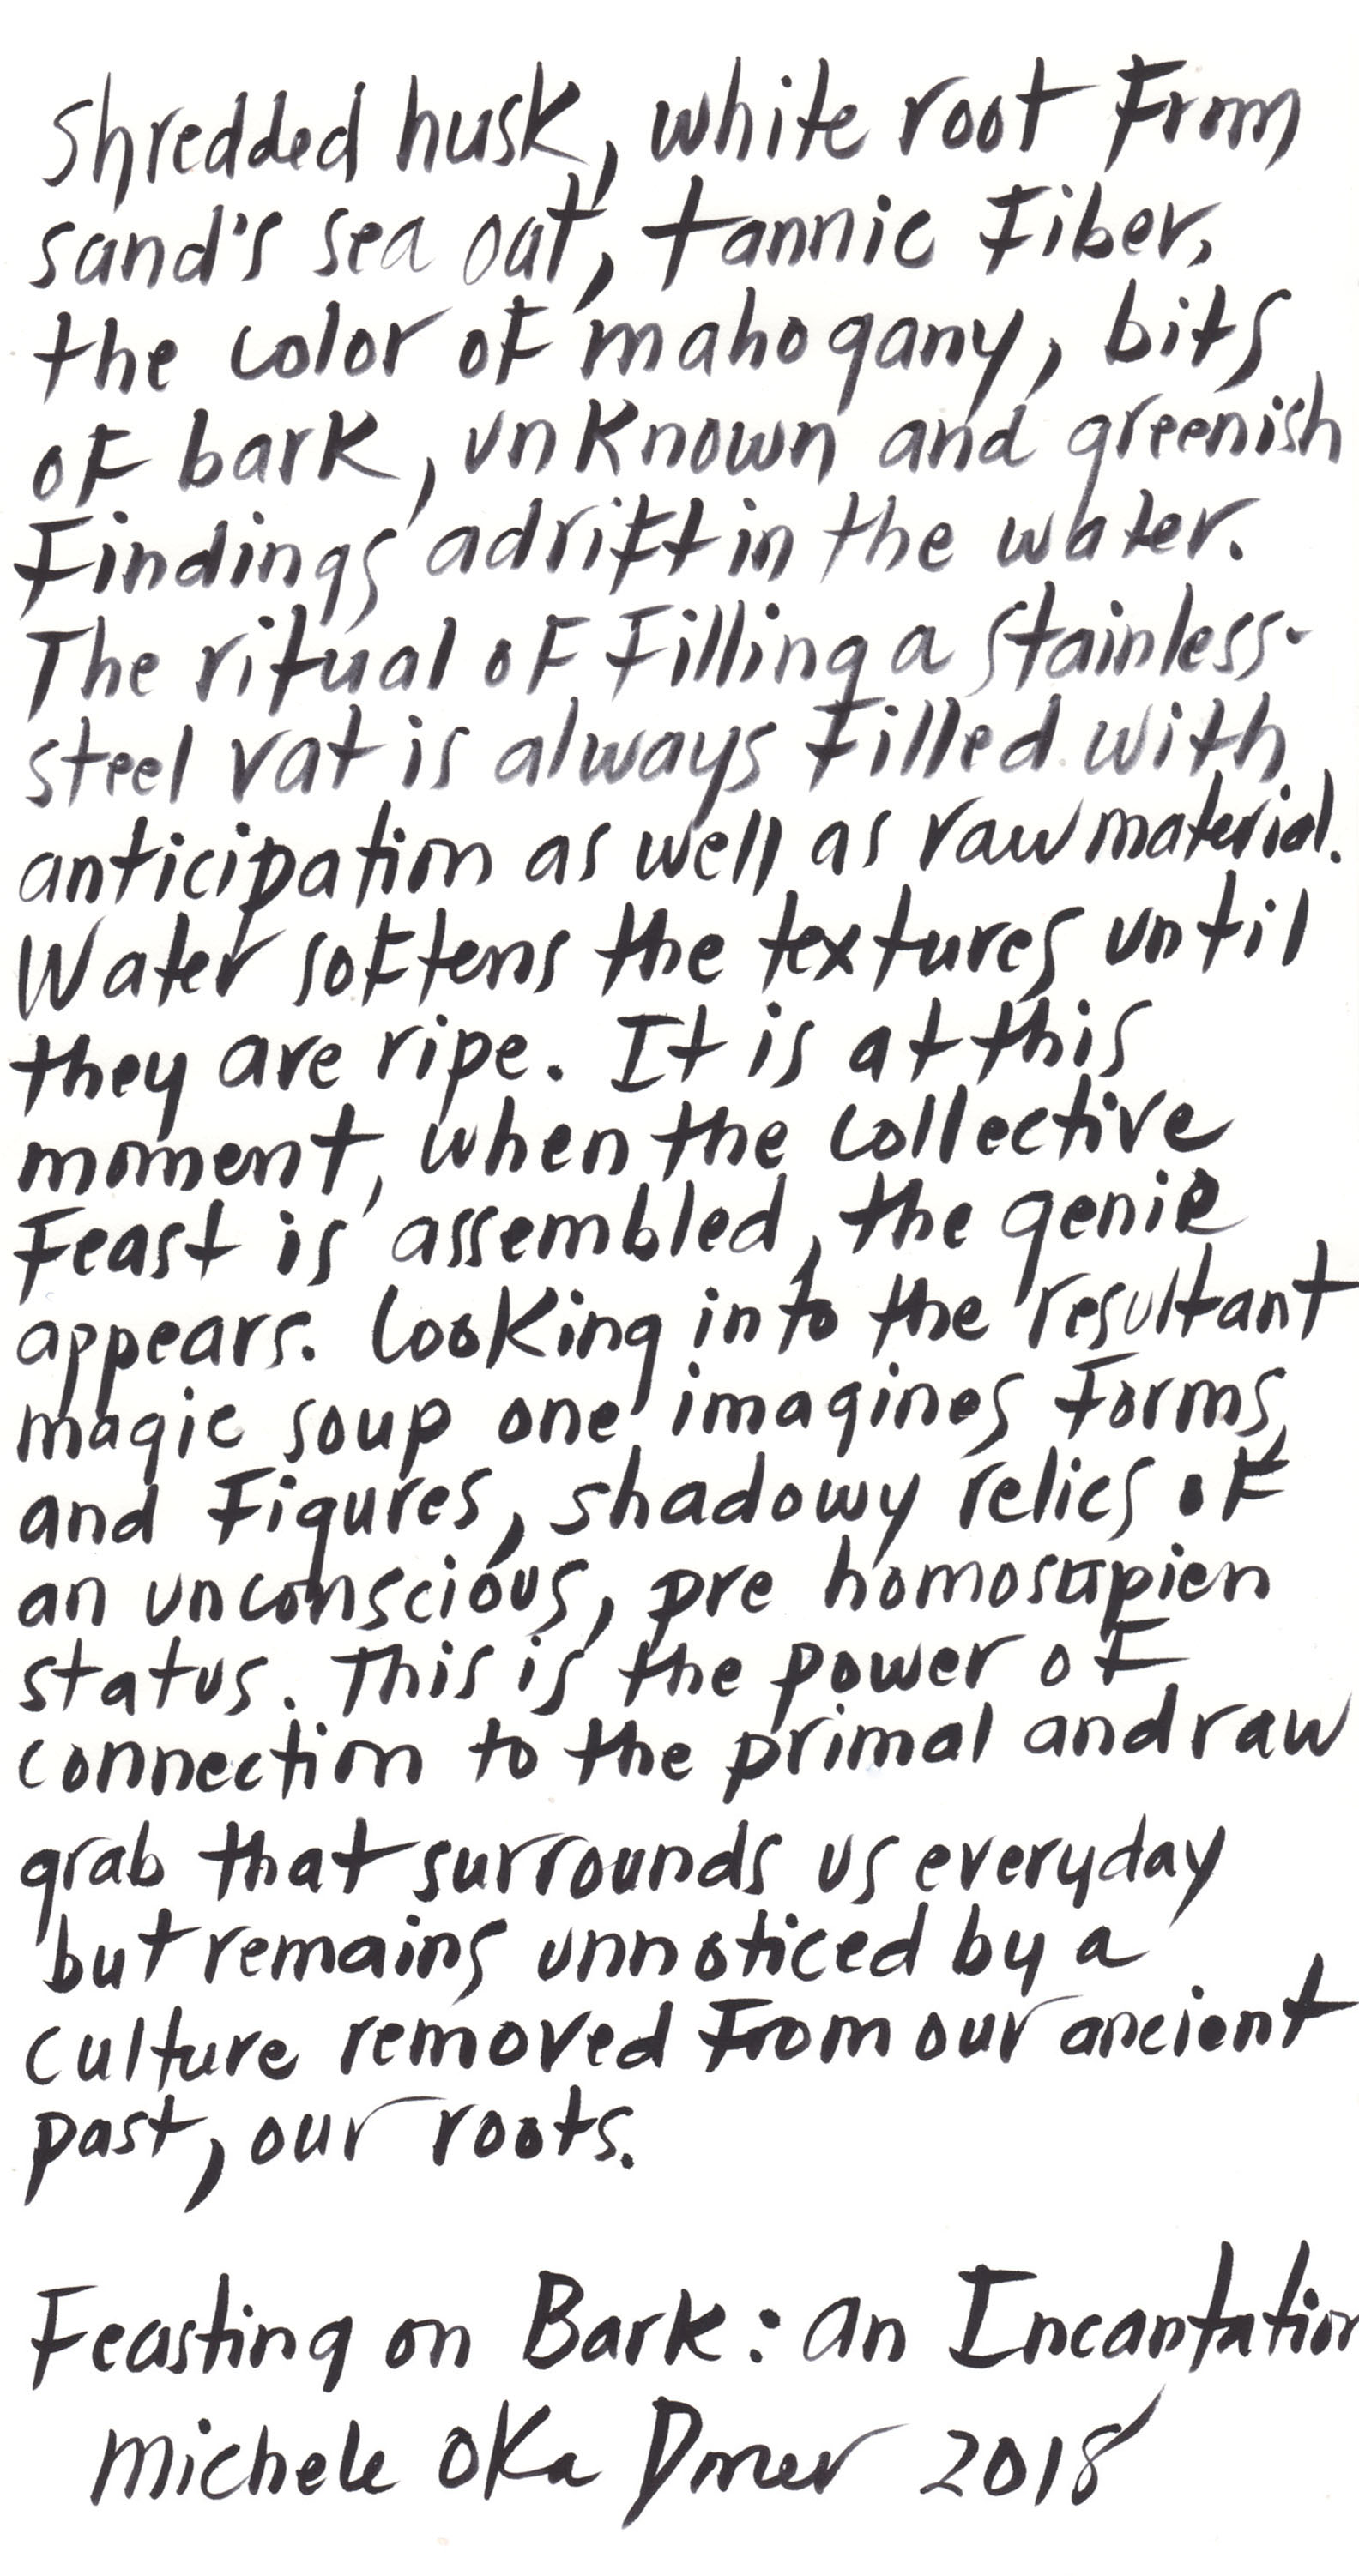 Shredded husk, white root From
sand's sea oat, tannic Fiber,
the color of mahogany, bits
of bark, unknown and greenish
Findings adrift in the water.
The ritual of Filling a stainless-
steel vat is always Filled with
anticipation as well as raw material.
Water softens the textures until
they are ripe. It is at this
moment, when the collective
Feast is assembled, the genie
appears. Looking into the resultant
magic soup one imagines Forms,
and Figures, shadowy relics of
an unconscious, pre homosapien
status. This is the power of
connection to the primal and raw
grab that surrounds us everyday
but remains unnoticed by a
culture removed From our ancient
past, our roots.
Feasting on Bark: An Incantation
Michele Oka Doner 2018